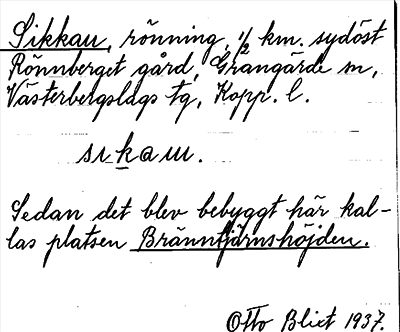 Sikkau, rönning, 1/2 km. sydöst
Rönnberget gård, Grangärde sn,
Västerbergslags tg, Kopp. l.
sıkau.
Sedan det blev bebyggt här kal-
las platsen Bränntjärnshöjden.
Otto Blixt 1937.